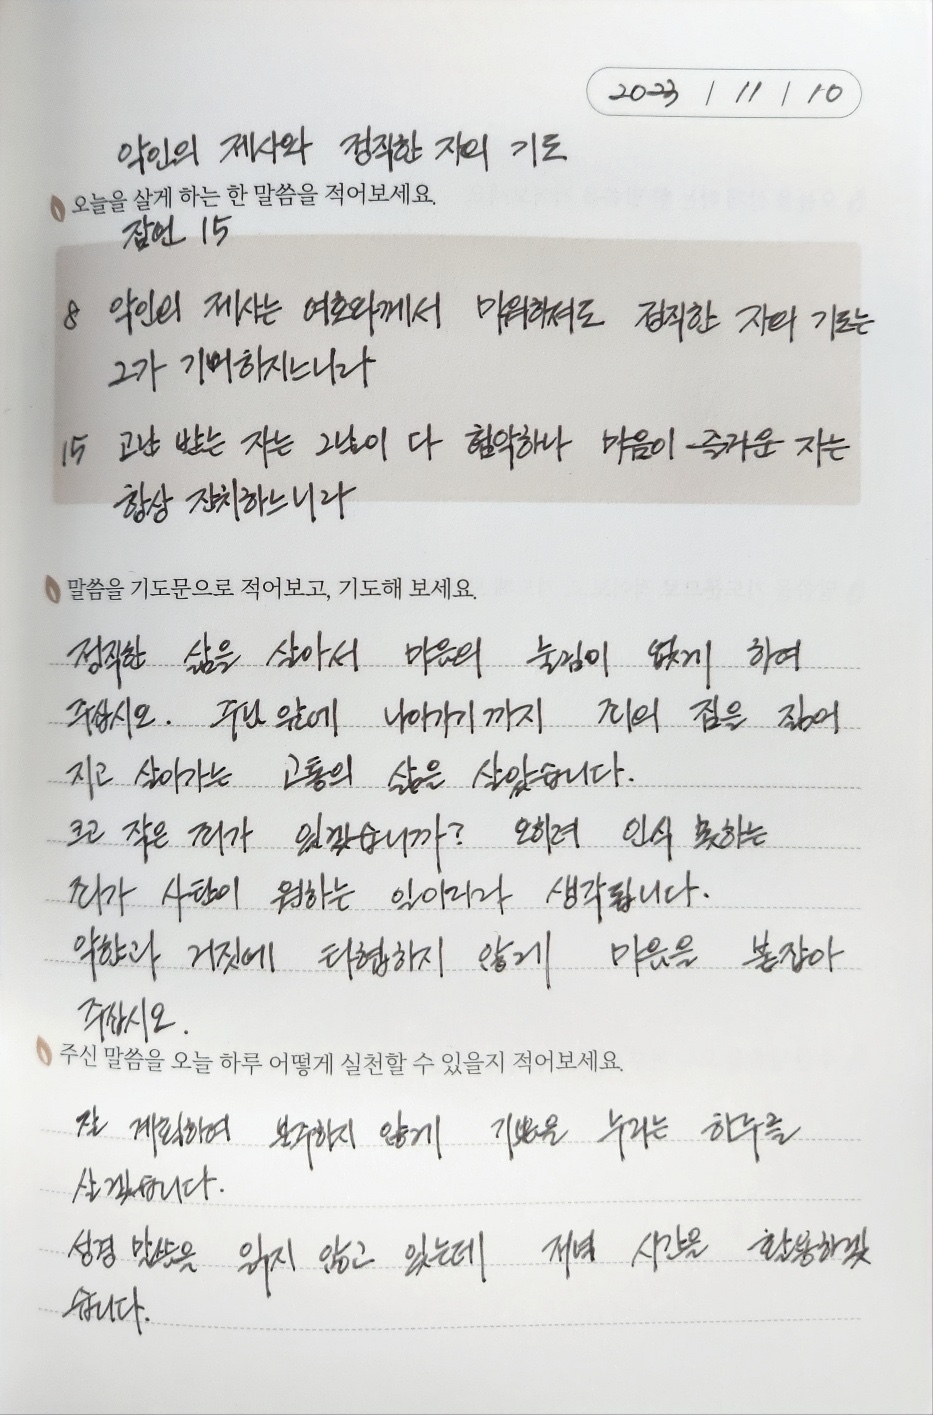 2023 / 11 / 10
악인의 제사와 정직한 자의 기도
오늘을 살게 하는 한 말씀을 적어보세요.
잠언 15
8 악인의 제사는 여호와께서 미워하셔도 정직한 자의 기도는
그가 기뻐하시느니라
15 고난 받는 자는 그날이 다 험악하나 마음이 즐거운 자는
항상 잔치하느니라
말씀을 기도문으로 적어보고, 기도해 보세요.
정직한 삶을 살아서 마음의 눌림이 없게 하여
주십시오. 주단 앞에 나아가기까지 죄의 짐을 짊어
지고 살아가는 고통의 삶을 살았습니다.
크고 작은 죄가 있겠습니까? 오히려 인식 못하는
죄가 사탄이 원하는 일이리라 생각됩니다.
악한과 거짓에 타협하지 않게 마음을 붙잡아
주십시오.
주신 말씀을 오늘 하루 어떻게 실천할 수 있을지 적어보세요.
잘 계획하여 분주하지 않게 기쁨을 누리는 하루를
살겠습니다.
성경 말씀을 읽지 않고 있는데 저녁 시간을 활용하겠
습니다.